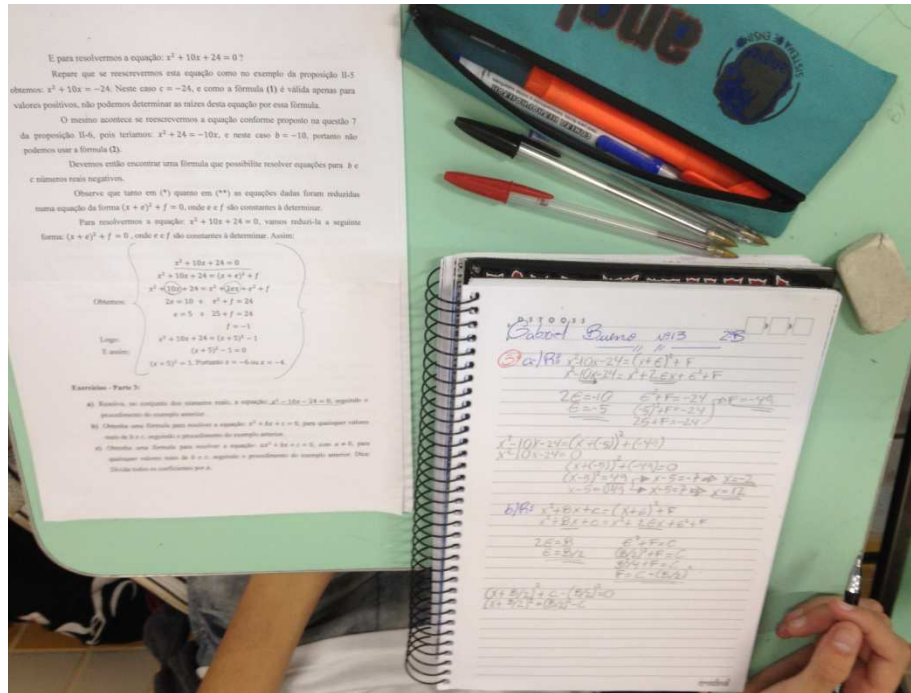 E para resolvermos a equação: x² + 10x + 24 = 0 ?
Repare que se reescrevermos esta equação como no exemplo da proposição II-5
obtemos: x² + 10x = −24. Neste caso c = −24, e como a fórmula (1) é válida apenas para
valores positivos, não podemos determinar as raízes desta equação por essa fórmula.
O mesmo acontece se reescrevermos a equação conforme proposto na questão 7
da proposição II-6, pois teríamos: x² + 24 = −10x, e neste caso b = −10, portanto não
podemos usar a fórmula (2).
Devemos então encontrar uma fórmula que possibilite resolver equações para b e
c números reais negativos.
Observe que tanto em (*) quanto em (**) as equações dadas foram reduzidas
numa equação da forma (x + e)² + f = 0, onde e e f são constantes à determinar.
Para resolvermos a equação: x² + 10x + 24 = 0, vamos reduzi-la a seguinte
forma: (x + e)² + f = 0 , onde e e f são constantes à determinar. Assim:
x² + 10x + 24 = 0
x² + 10x + 24 = (x + e)² + f
x² + 10x + 24 = x² + 2ex + e² + f
Obtemos: 2e = 10 e e² + f = 24
e = 5 e 25 + f = 24
f = −1
Logo: x² + 10x + 24 = (x + 5)² − 1
E assim: (x + 5)² − 1 = 0
(x + 5)² = 1. Portanto x = −6 ou x = −4.
Exercícios - Parte 3:
a) Resolva, no conjunto dos números reais, a equação: x² − 10x − 24 = 0, seguindo o
procedimento do exemplo anterior.
b) Obtenha uma fórmula para resolver a equação: x² + bx + c = 0, para quaisquer valores
reais de b e c, seguindo o procedimento do exemplo anterior.
c) Obtenha uma fórmula para resolver a equação: ax² + bx + c = 0, com a ≠ 0, para
quaisquer valores reais de b e c, seguindo o procedimento do exemplo anterior. Dica:
Divida todos os coeficientes por a.
anal
SISTEMA DE ENSINO
D S T Q Q S S
Gabriel Bueno nº13 2ºB
3) a) R: x²-10x-24=(x+E)²+F
x²-10x-24=x²+2Ex+E²+F
2E=-10 E²+F=-24 F=-49
E=-5 (-5)²+F=-24
25+F=-24
x²-10x-24=(x+(-5))²+(-49)
x²-10x-24=0
(x+(-5))²+(-49)=0
(x-5)²=49 x-5=-7 x=-2
x-5=√49 x-5=7 x=12
b) R: x²+Bx+C=(x+E)²+F
x²+Bx+C=x²+2Ex+E²+F
2E=B E²+F=C
E=B/2 (B/2)²+F=C
B²/4+F=C
F=C-(B/2)²
(x+B/2)²+C-(B/2)²=0
(x+B/2)²=(B/2)²-C
credeal